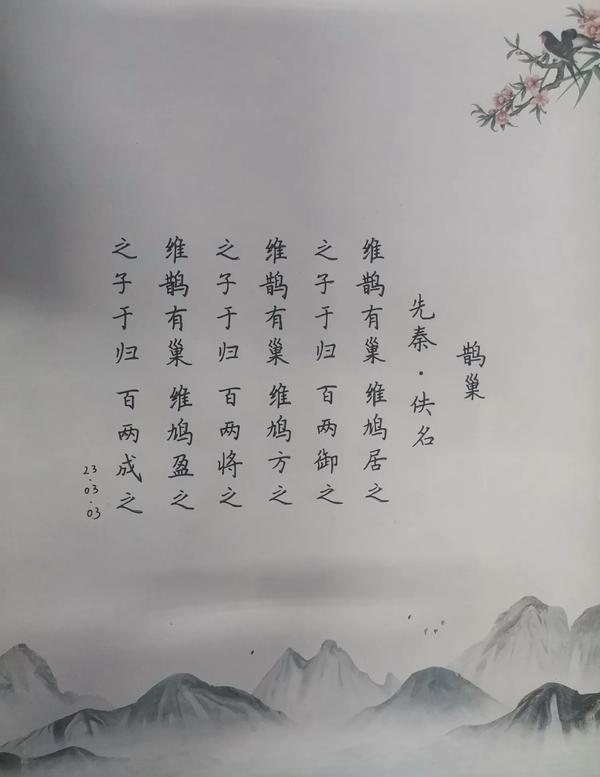 鹊巢
先秦·佚名
维鹊有巢 维鸠居之
之子于归 百两御之
维鹊有巢 维鸠方之
之子于归 百两将之
维鹊有巢 维鸠盈之
之子于归 百两成之
23.03.03